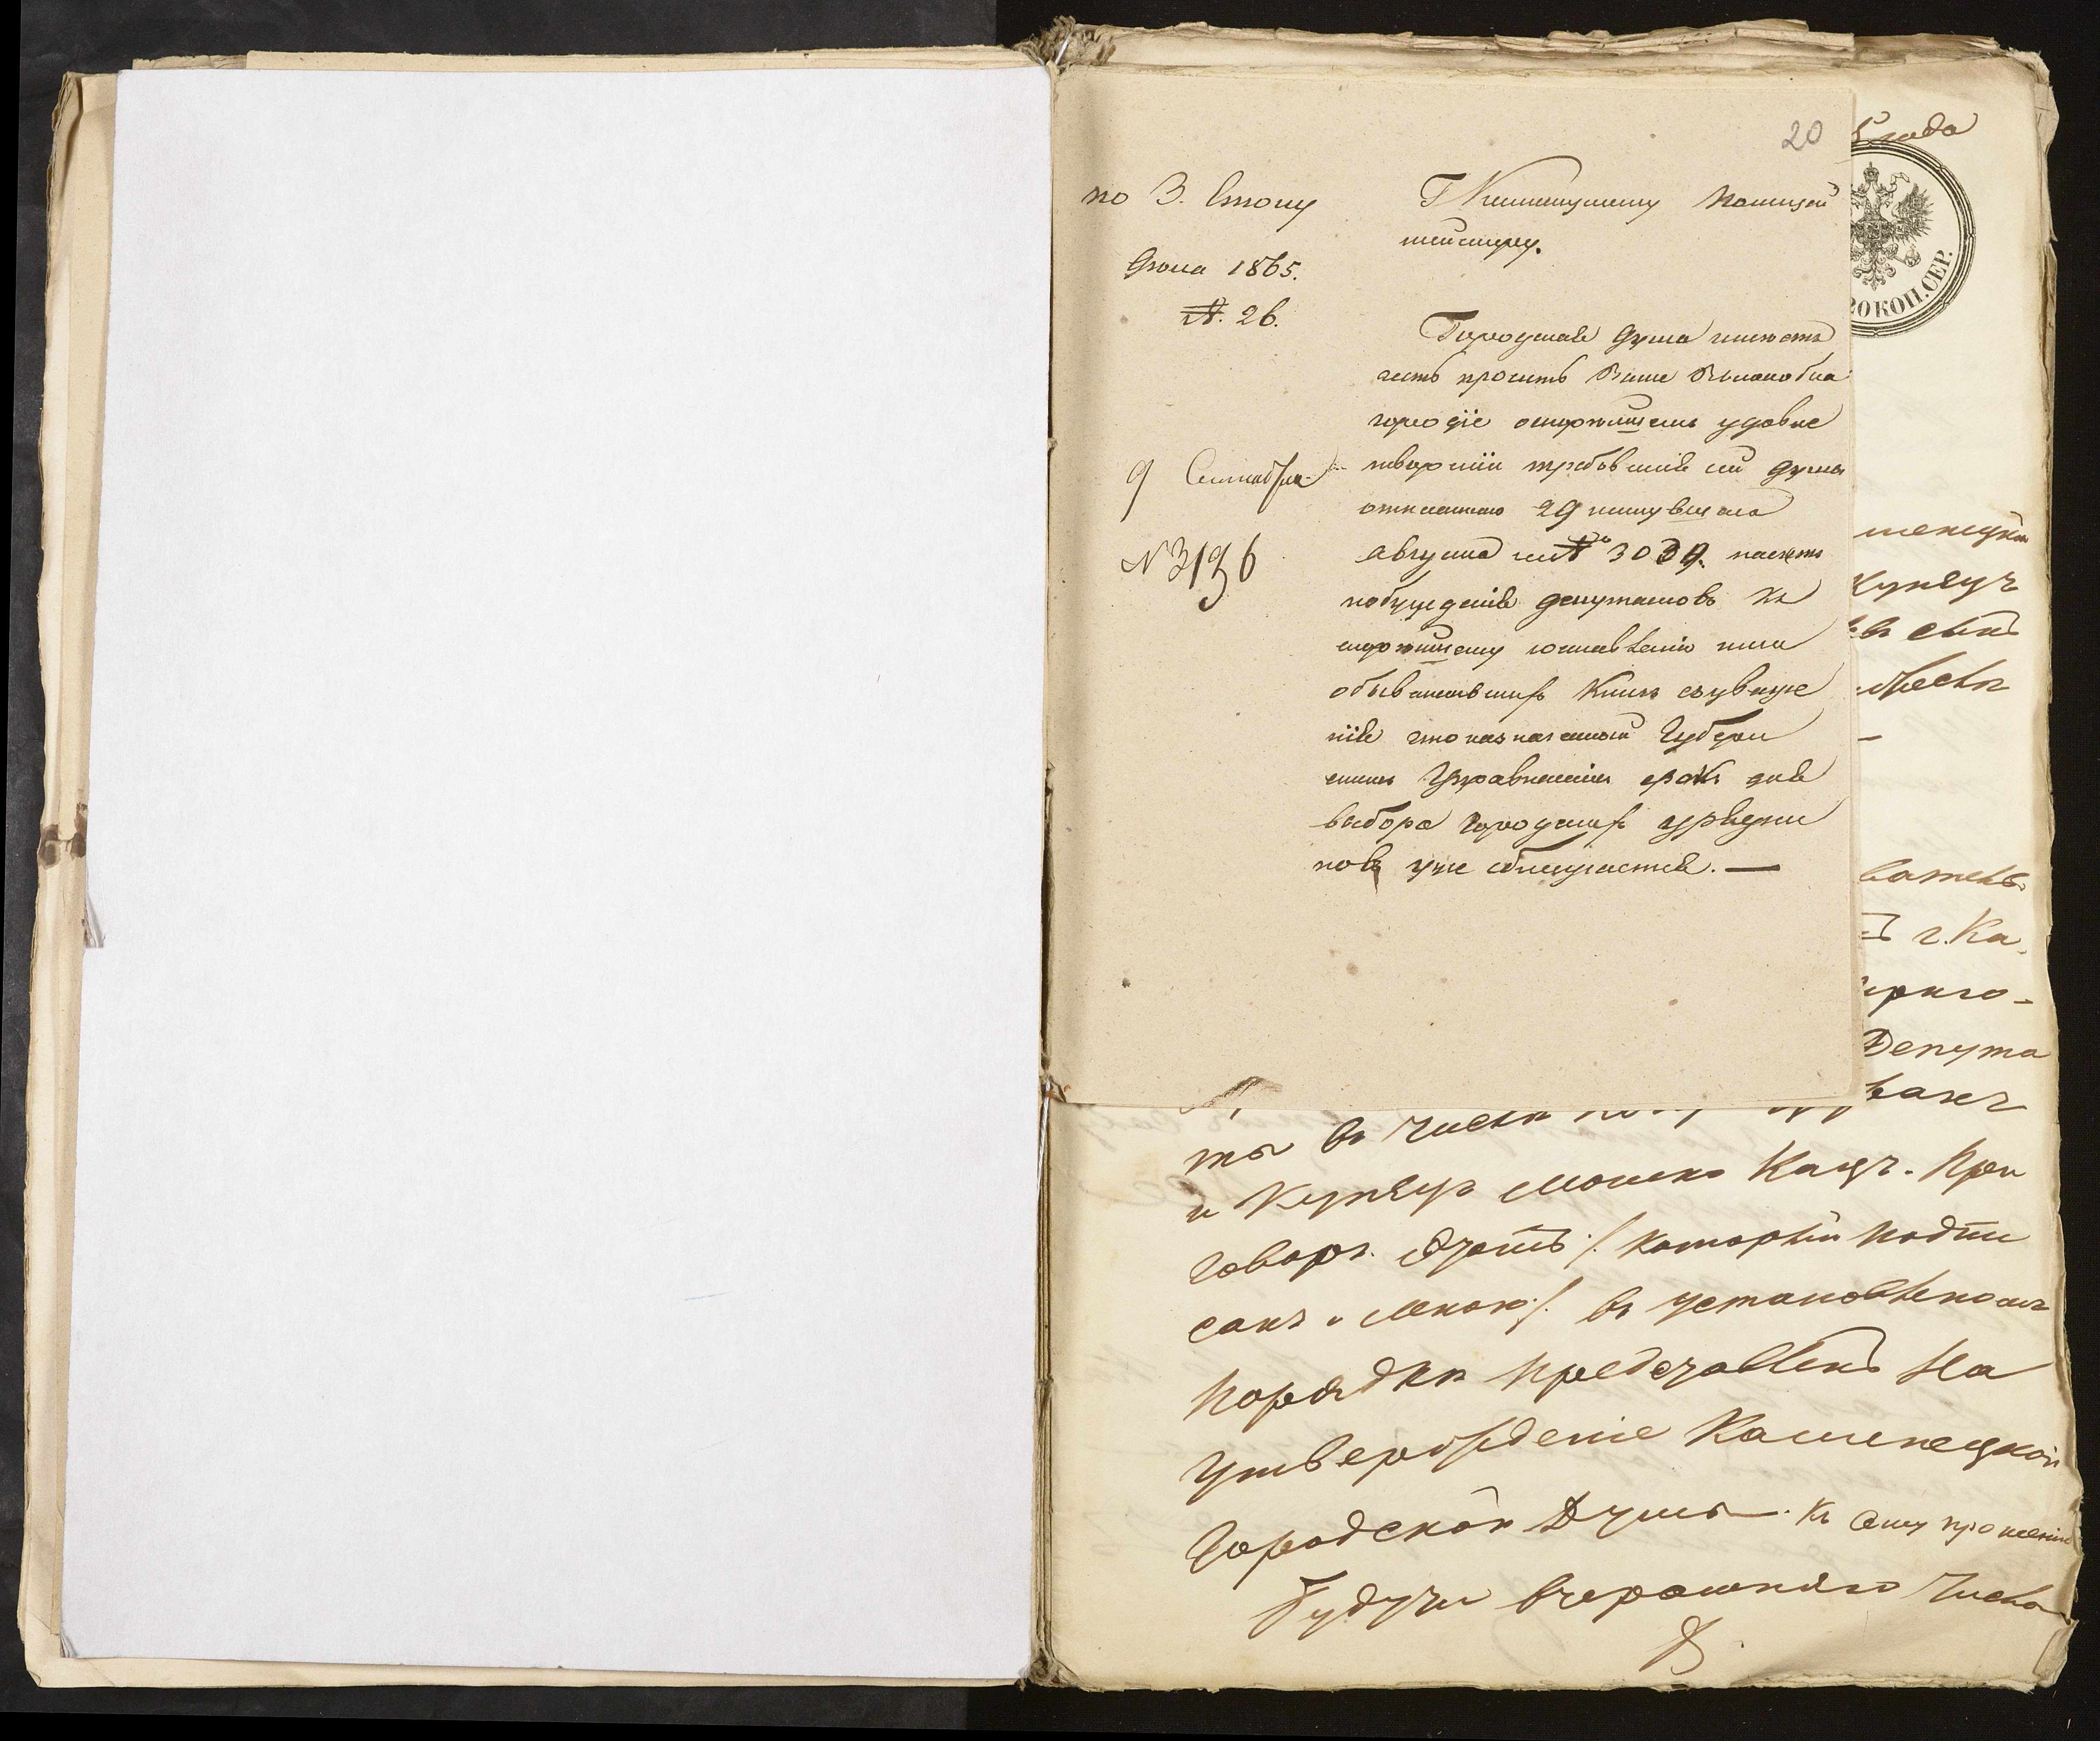 20
по 3. Столу
Дѣла 1865.
№. 26.
9 Сентября
№ 3136
Г Каменецкому Полицей
мейстеру.
Городская Дума имѣетъ
честь просить Ваше Высокобла
городіе о скорѣйшемъ удовле
твореніи требованія сей Думы
отъ 29 минувшаго
Августа за № 3039. насчетъ
побужденія депутатовъ къ
скорѣйшему составленію
обывательскихъ книгъ
что назначенный Губерн
скимъ Правленіемъ срокъ для
выбора городскихъ
ковъ уже сближается. —
5 года
20 КОП. СЕР.
менецкій
Купецъ
—
г. Ка
приго-
Депута
ты въ числѣ
и Купецъ Мошко Кацъ. При
говоръ этотъ /. который подпи
санъ и мною /. въ установленомъ
порядкѣ представленъ на
утвержденіе Каменецкой
Городской Думы. Къ сему прошенію
Будучи вчерашняго числа